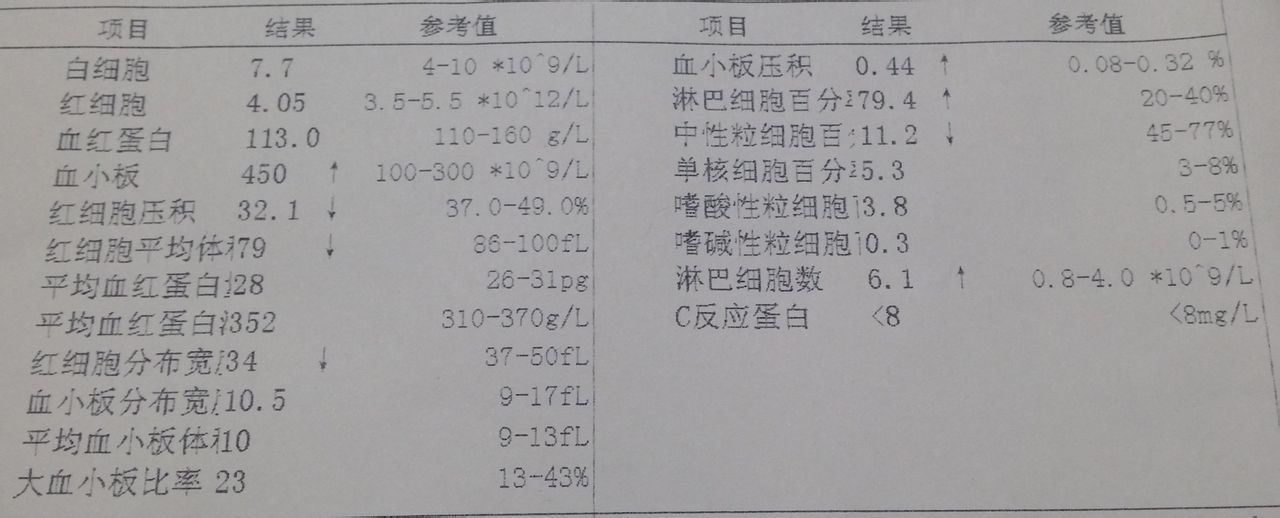 项目 结果 参考值
白细胞 7.7 4-10 *10^9/L
红细胞 4.05 3.5-5.5 *10^12/L
血红蛋白 113.0 110-160 g/L
血小板 450 ↑ 100-300 *10^9/L
红细胞压积 32.1 ↓ 37.0-49.0%
红细胞平均体 79 ↓ 86-100fL
平均血红蛋白 28 26-31pg
平均血红蛋白 352 310-370g/L
红细胞分布宽 34 ↓ 37-50fL
血小板分布宽 10.5 9-17fL
平均血小板体 10 9-13fL
大血小板比率 23 13-43%
项目 结果 参考值
血小板压积 0.44 ↑ 0.08-0.32 %
淋巴细胞百分 79.4 ↑ 20-40%
中性粒细胞百 11.2 ↓ 45-77%
单核细胞百分 5.3 3-8%
嗜酸性粒细胞 3.8 0.5-5%
嗜碱性粒细胞 0.3 0-1%
淋巴细胞数 6.1 ↑ 0.8-4.0 *10^9/L
C反应蛋白 <8 <8mg/L